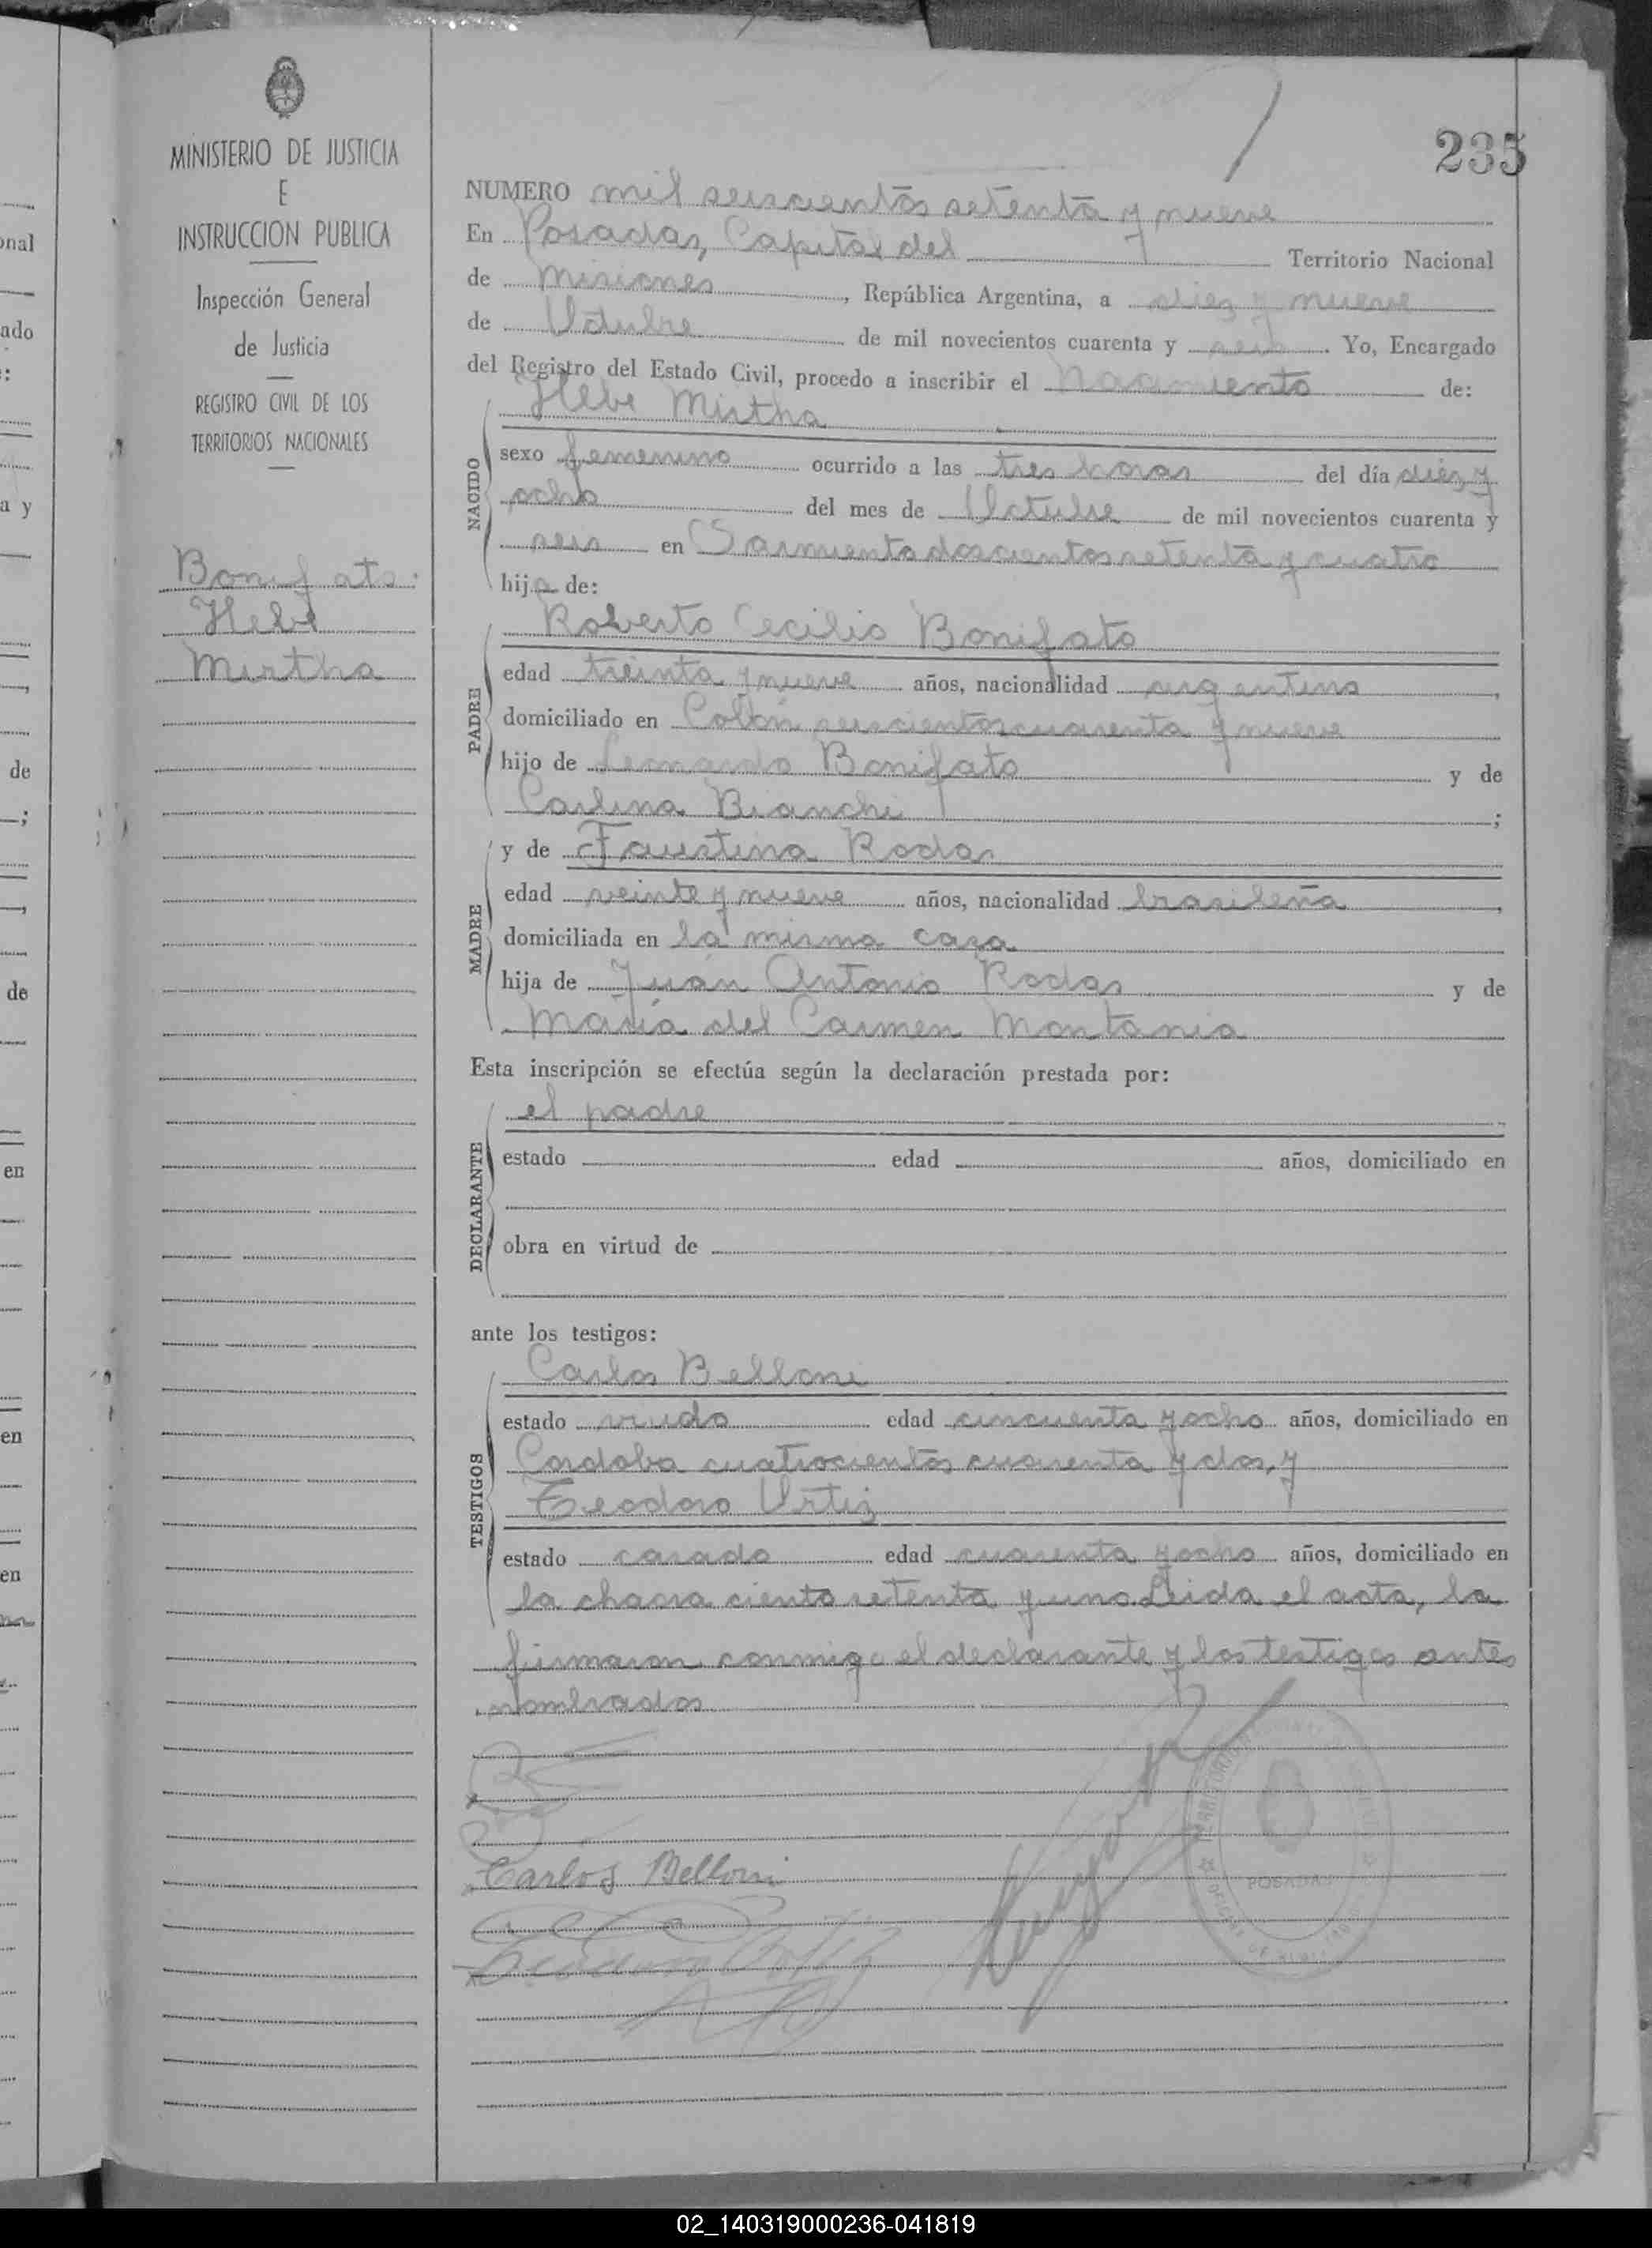 MINISTERIO DE JUSTICIA
E
INSTRUCCION PUBLICA
Inspección General
de Justicia
REGISTRO CIVIL DE LOS
TERRITORIOS NACIONALES
Bonifato:
Hebe
Mirtha
235
NUMERO mil seiscientos setenta y nueve
En Posadas, Capital del Territorio Nacional
de Misiones, República Argentina, a diez y nueve
de Octubre de mil novecientos cuarenta y seis. Yo, Encargado
del Registro del Estado Civil, procedo a inscribir el Nacimiento de:
NACIDO
Hebe Mirtha
sexo femenino ocurrido a las tres horas del día diez y
ocho del mes de Octubre de mil novecientos cuarenta y
seis en Sarmiento doscientos setenta y cuatro
hija de:
PADRE
Roberto Cecilio Bonifato
edad treinta y nueve años, nacionalidad argentino,
domiciliado en Colón seiscientos cuarenta y nueve
hijo de Leonardo Bonifato y de
Carlina Bianchi;
MADRE
y de Faustina Rodas
edad veinte y nueve años, nacionalidad brasileña,
domiciliada en la misma casa
hija de Juán Antonio Rodas y de
María del Carmen Montania
Esta inscripción se efectúa según la declaración prestada por:
DECLARANTE
el padre
estado edad años, domiciliado en
obra en virtud de
ante los testigos:
TESTIGOS
Carlos Belloni
estado viudo edad cincuenta y ocho años, domiciliado en
Cordoba cuatrocientos cuarenta y dos, y
Teodoro Ortiz
estado casado edad cuarenta y ocho años, domiciliado en
la chacra ciento setenta y uno. Leida el acta, la
firmaron conmigo el declarante y los testigos antes
nombrados
Carlos Belloni
POSADAS
02_140319000236-041819